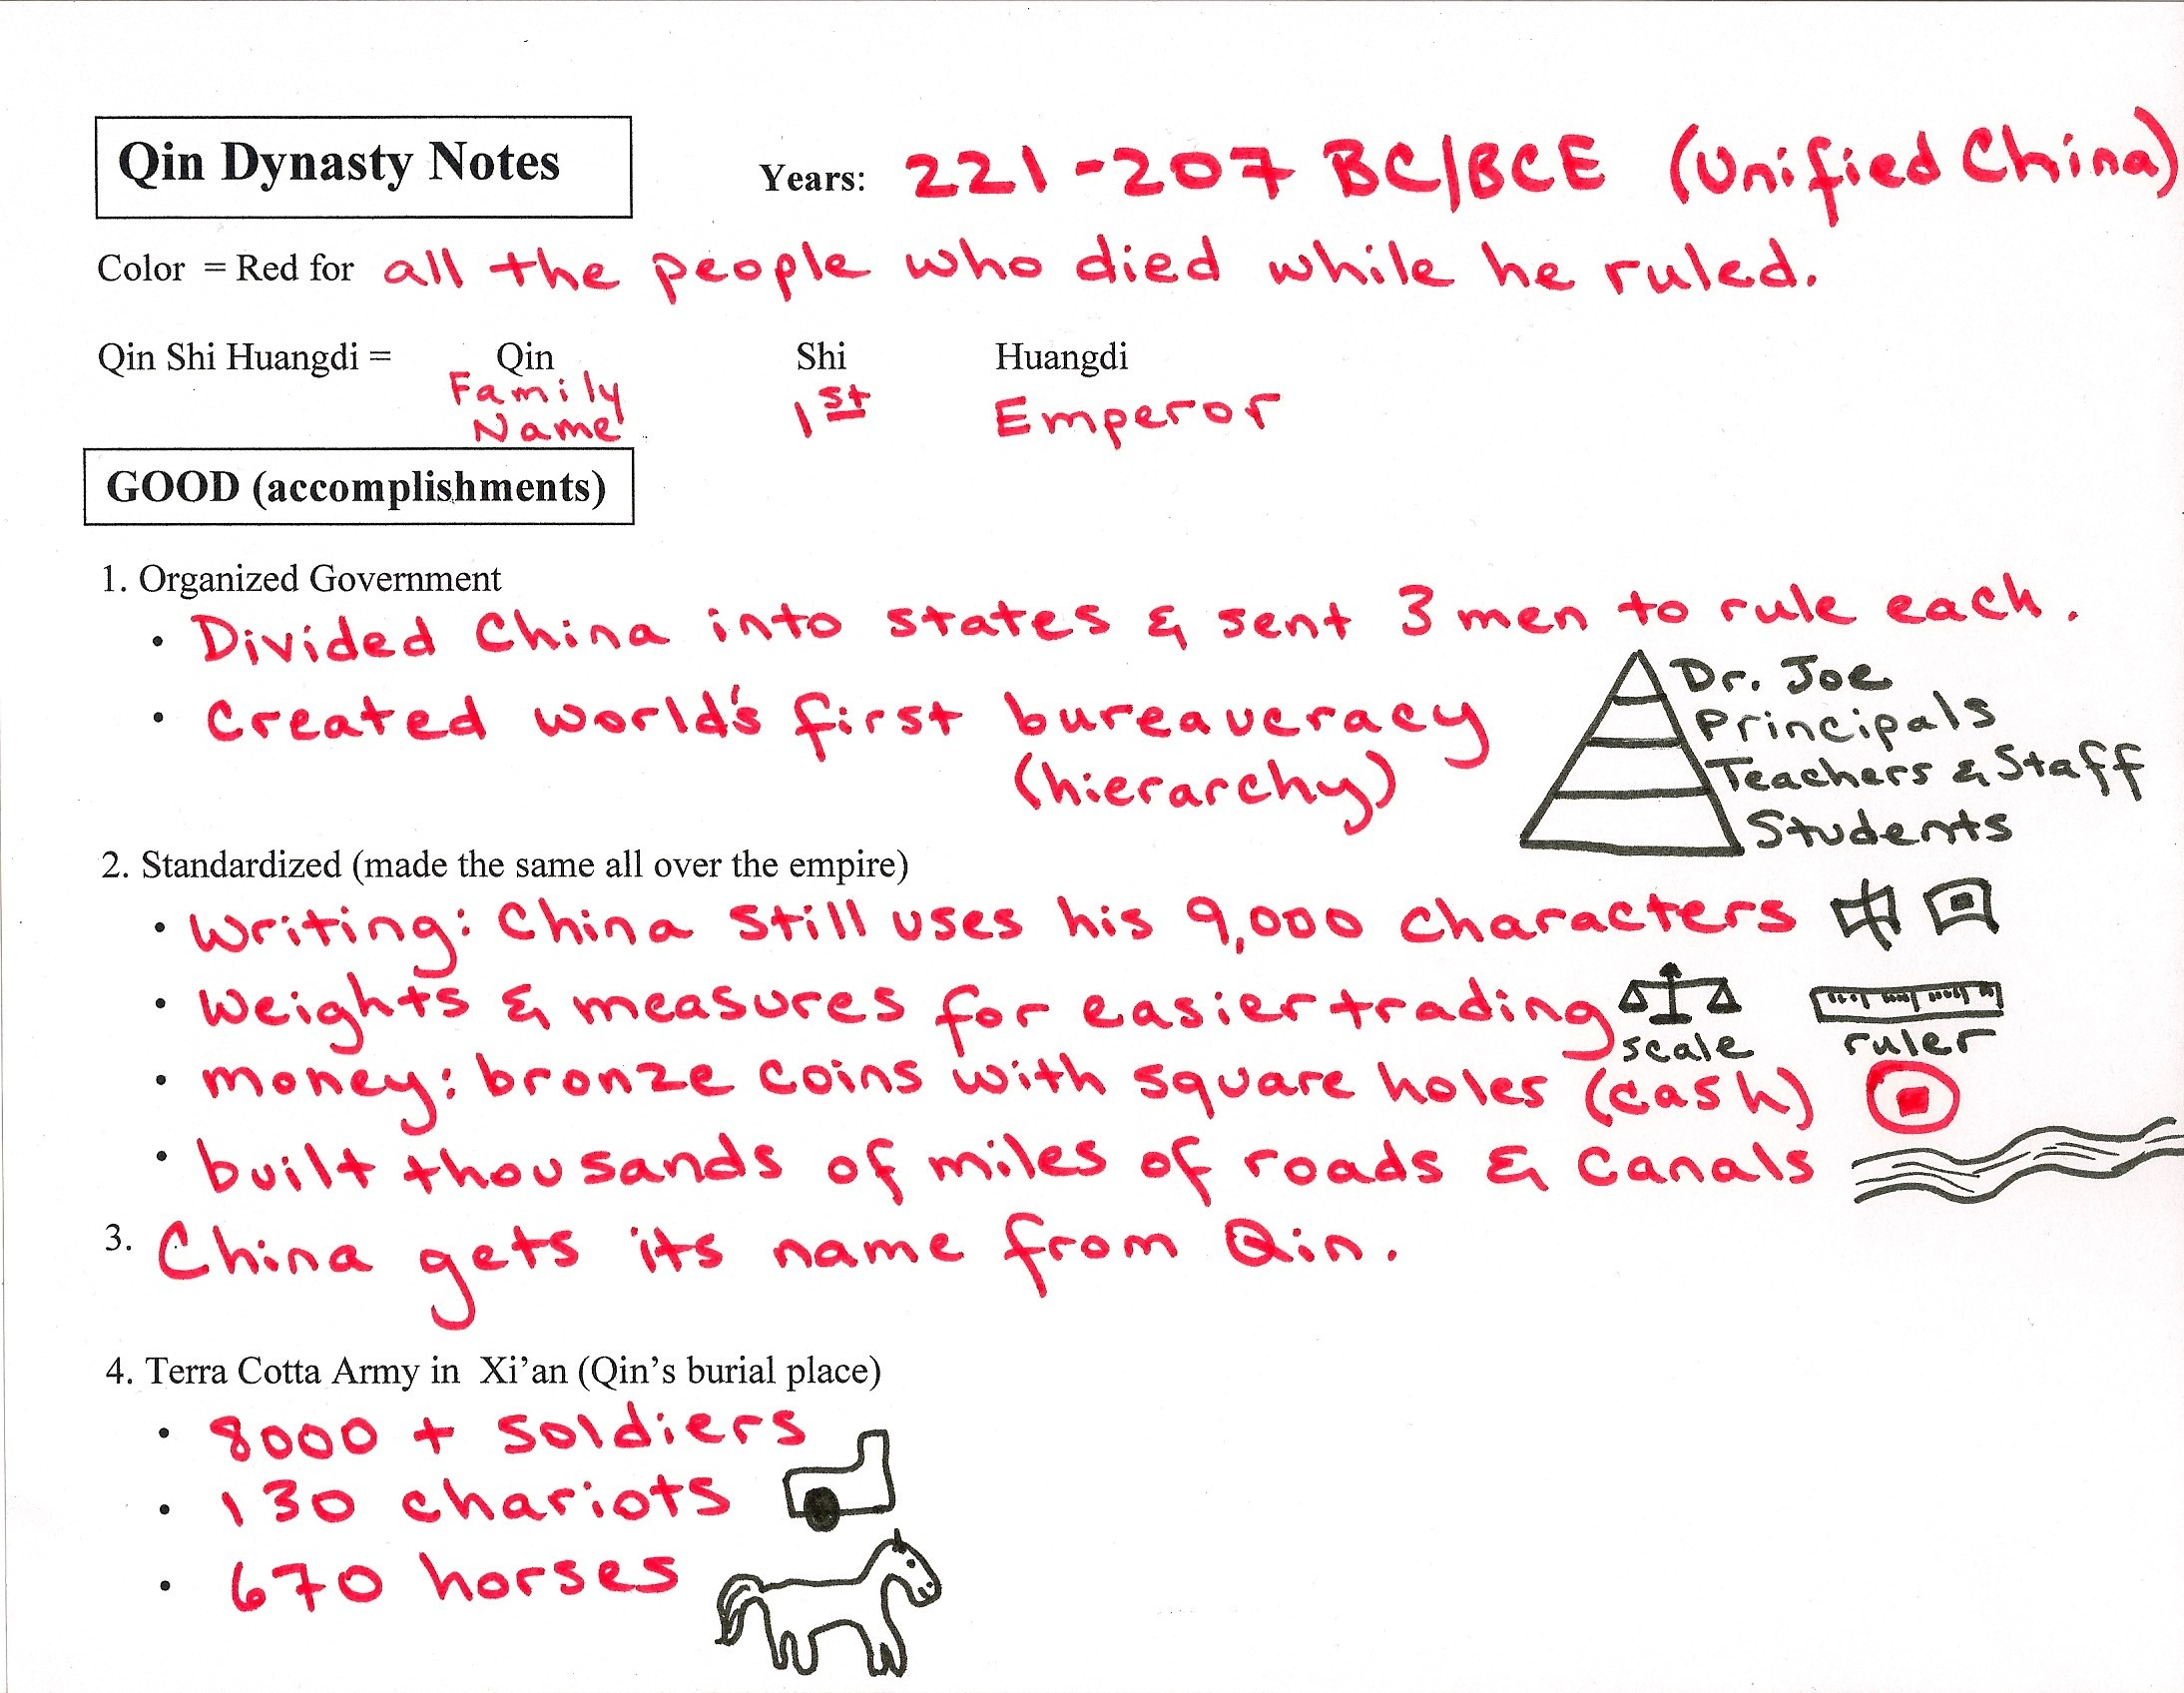 Qin Dynasty Notes Years: 221-207 BC/BCE (Unified China)
Color = Red for all the people who died while he ruled.
Qin Shi Huangdi = Qin Shi Huangdi
Family Name 1st Emperor
GOOD (accomplishments)
1. Organized Government
• Divided China into states & sent 3 men to rule each.
• Created world's first bureaucracy
(hierarchy)
Dr. Joe
Principals
Teachers & Staff
Students
2. Standardized (made the same all over the empire)
• Writing: China still uses his 9,000 characters
• Weights & measures for easier trading
scale ruler
• money: bronze coins with square holes (cash)
• built thousands of miles of roads & canals
3. China gets its name from Qin.
4. Terra Cotta Army in Xi'an (Qin's burial place)
• 8000 + soldiers
• 130 chariots
• 670 horses